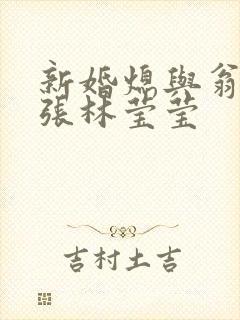 新婚媳與翁
張林莹莹
吉村土吉